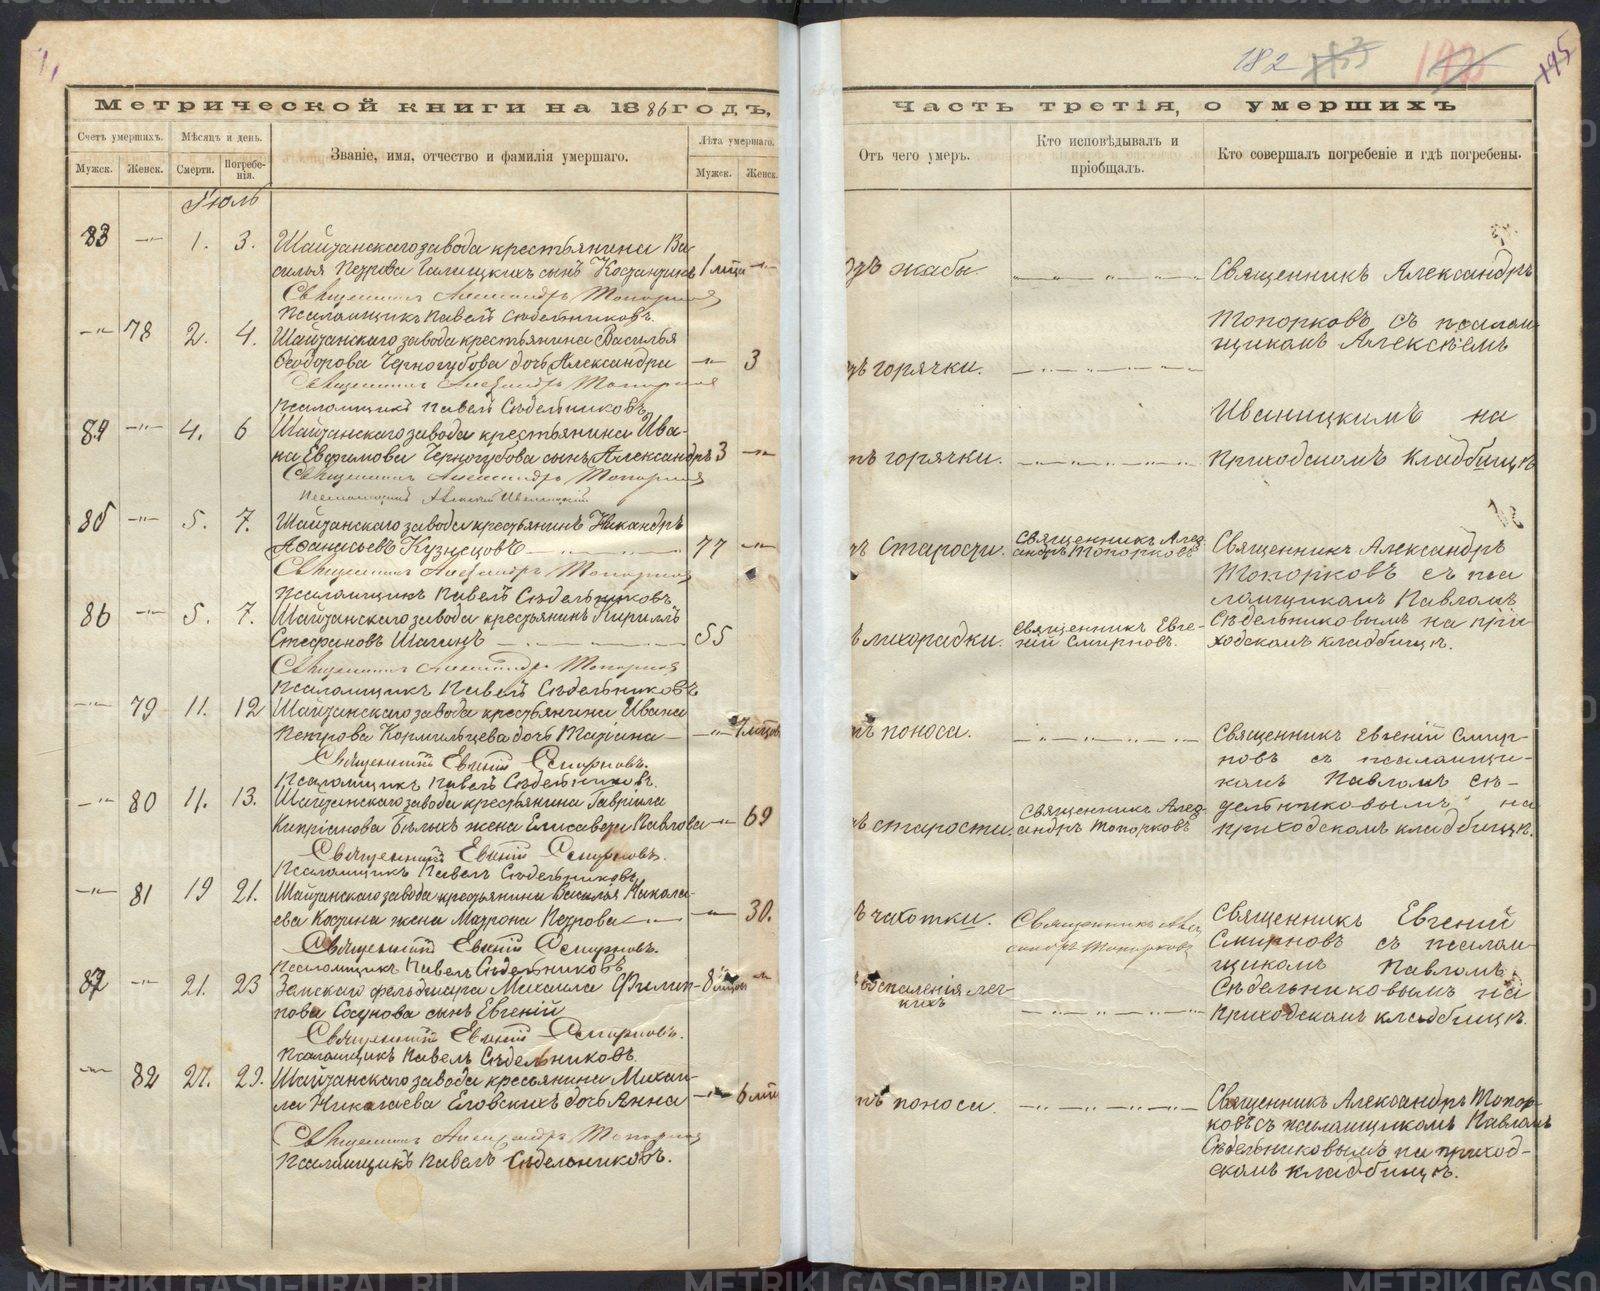 182
195
Метрической книги на 1886 годъ,
Часть третія, о умершихъ
Счетъ умершихъ.
Мѣсяцъ и день.
Званіе, имя, отчество и фамилія умершаго.
Лѣта умершаго.
Мужск.
Женск.
Смерти.
Погребе-
нія.
Мужск.
Женск.
Отъ чего умеръ.
Кто исповѣдывалъ и
пріобщалъ.
Кто совершалъ погребеніе и гдѣ погребены.
Іюль
83 —"— 1. 3. Шайтанскаго завода крестьянина Ва-
силья Петрова Галицкихъ сынъ Константинъ 1 мѣс —"—
Священникъ Александръ Топорковъ
Псаломщикъ Павелъ Сѣдельниковъ.
жабы
Священникъ Александръ
Топорковъ съ псалом-
щикомъ Алексѣемъ
Иваницкимъ на
приходскомъ кладбищѣ
—"— 78 2. 4. Шайтанскаго завода крестьянина Василья
Ѳеодорова Черногубова дочь Александра —"— 3
Священникъ Александръ Топорковъ
Псаломщикъ Павелъ Сѣдельниковъ.
горячки.
84 —"— 4. 6 Шайтанскаго завода крестьянина Ива-
на Евфимова Черногубова сынъ Александръ 3 —"—
Священникъ Александръ Топорковъ
Псаломщикъ Алексѣй Иваницкій
горячки.
85 —"— 5. 7. Шайтанскаго завода крестьянинъ Никандръ
Аѳанасьевъ Кузнецовъ 77 —"—
Священникъ Александръ Топорковъ
Псаломщикъ Павелъ Сѣдельниковъ
старости.
Священникъ Алек-
сандръ Топорковъ
Священникъ Александръ
Топорковъ съ пса-
ломщикомъ Павломъ
Сѣдельниковымъ на при-
ходскомъ кладбищѣ.
86 —"— 5. 7. Шайтанскаго завода крестьянинъ Кириллъ
Стефановъ Шагинъ 55
Священникъ Александръ Топорковъ
Псаломщикъ Павелъ Сѣдельниковъ
лихорадки.
Священникъ Евге-
ній Смирновъ.
—"— 79 11. 12 Шайтанскаго завода крестьянина Ивана
Петрова Кормильцева дочь Маріана —"— 7 мѣсяц
Священникъ Евгеній Смирновъ.
Псаломщикъ Павелъ Сѣдельниковъ.
поноса.
Священникъ Евгеній Смир-
новъ съ псаломщи-
комъ Павломъ Сѣ-
дельниковымъ на
приходскомъ кладбищѣ.
—"— 80 11. 13. Шайтанскаго завода крестьянина Гавріила
Кипріанова Бѣлыхъ жена Елисавета Павлова —"— 69
Священникъ Евгеній Смирновъ.
Псаломщикъ Павелъ Сѣдельниковъ
старости.
Священникъ Алек-
сандръ Топорковъ
—"— 81 19 21. Шайтанскаго завода крестьянина Василія Никола-
ева Костина жена Матрона Петрова —"— 30.
Священникъ Евгеній Смирновъ.
Псаломщикъ Павелъ Сѣдельниковъ
чахотки.
Священникъ Алек-
сандръ Топорковъ
Священникъ Евгеній
Смирновъ съ псалом-
щикомъ Павломъ
Сѣдельниковымъ на
приходскомъ кладбищѣ.
87 —"— 21. 23 Земскаго фельдшара Михаила Филип-
пова Сосунова сынъ Евгеній 8 мѣсяц —"—
Священникъ Евгеній Смирновъ.
Псаломщикъ Павелъ Сѣдельниковъ.
воспаленія лег-
кихъ
—"— 82 27. 29. Шайтанскаго завода кресьянина Михаи-
ла Николаева Еловскихъ дочь Анна —"— 6 мѣс
Священникъ Александръ Топорковъ
Псаломщикъ Павелъ Сѣдельниковъ.
поноса.
Священникъ Александръ Топор-
ковъ съ псаломщикомъ Павломъ
Сѣдельниковымъ на приход-
скомъ кладбищѣ.
METRIKI.GASO-URAL.RU